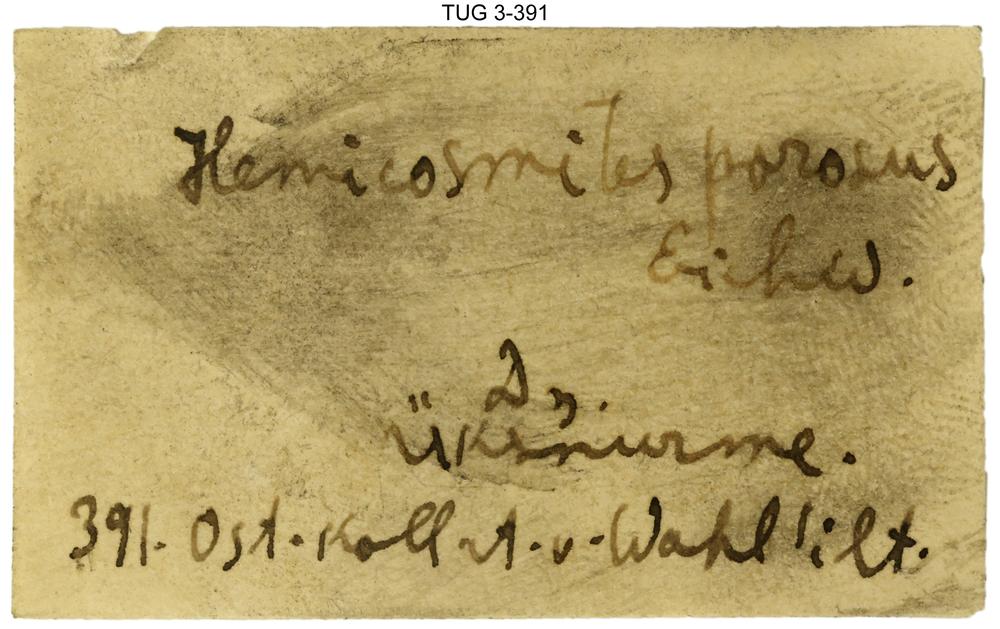 TUG 3-391
Hemicosmites porosus
Eichw.
D3.
Üksnurme.
391. Ost. Koll A. v. Wahl'ilt.